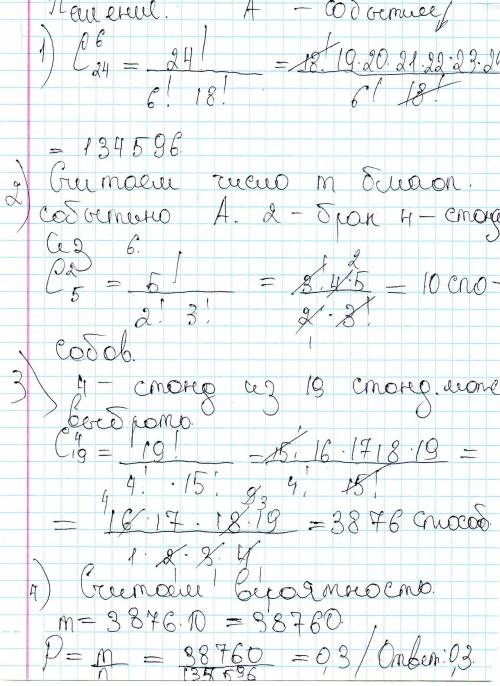 Решение. А – событие
1) C⁶₂₄ = 24! / (6! 18!) = 18! 19·20·21·22·23·24 / (6! 18!)
= 134596
2) Считаем число m благоп.
событию А. 2 – брак 4 – станд
из 6.
C²₅ = 5! / (2! 3!) = 3!·4·5 / (2·3!) = 10 спо-
собов.
3) 4 – станд из 19 станд. може
выбрать.
C⁴₁₉ = 19! / (4!·15!) = 15! 16·17 18·19 / (4! 15!) =
= 16·17·18·19 / (1·2·3·4) = 3876 способ
4) Считаем вероятность.
m = 3876·10 = 38760.
P = m/n = 38760/134596 = 0,3 / Ответ: 0,3.